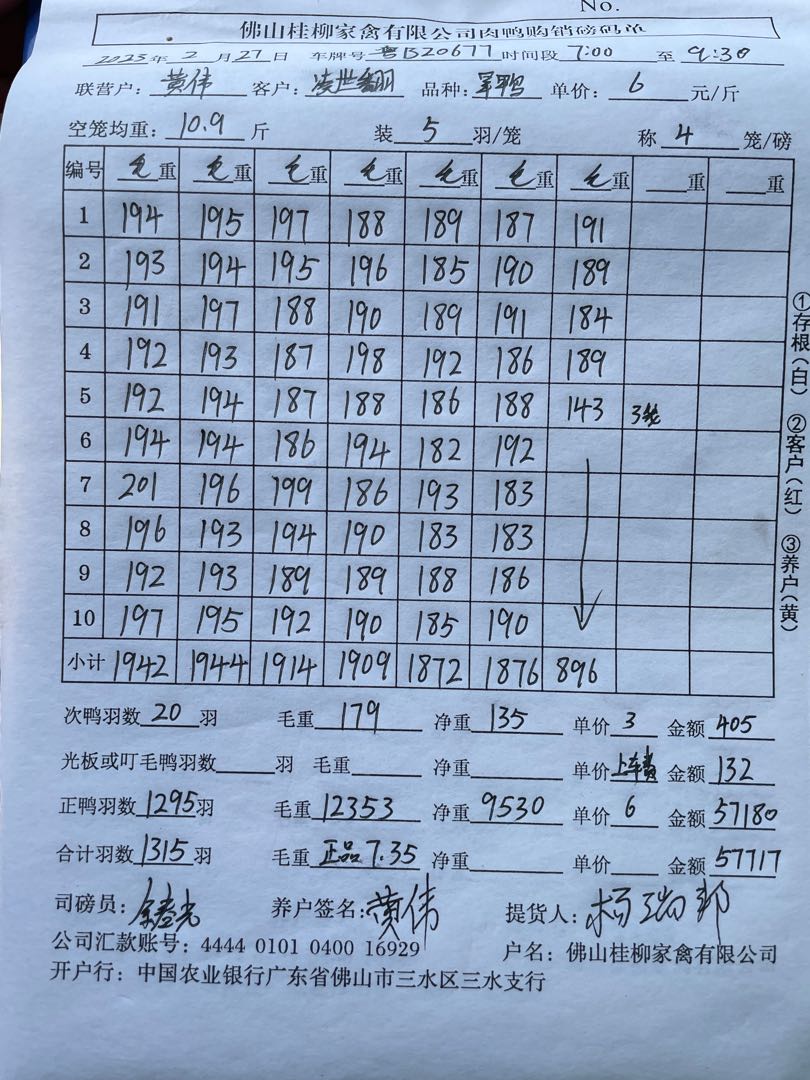 No.
佛山桂柳家禽有限公司肉鸭购销磅码单
2023年 2月 27日 车牌号 粤B20677 时间段 7:00 至 9:30
联营户：黄伟 客户：凌世翻 品种：单价：6 元/斤
空笼均重：10.9 斤 装 5 羽/笼 称 4 笼/磅
编号 毛重 毛重 毛重 毛重 毛重 毛重 毛重 重 重
1 194 195 197 188 189 187 191
2 193 194 195 196 185 190 189
3 191 197 188 190 189 191 184
4 192 193 187 198 192 186 189
5 192 194 187 188 186 188 143 3笼
6 194 194 186 194 182 192
7 201 196 199 186 193 183
8 196 193 194 190 183 183
9 192 193 189 189 188 186
10 197 195 192 190 185 190
小计 1942 1944 1914 1909 1872 1876 896
次鸭羽数 20 羽 毛重 179 净重 135 单价 3 金额 405
光板或叮毛鸭羽数 羽 毛重 净重 单价 上车费 金额 132
正鸭羽数 1295 羽 毛重 12353 净重 9530 单价 6 金额 57180
合计羽数 1315 羽 毛重 正品 7.35 净重 单价 金额 57717
司磅员： 养户签名：黄伟 提货人：杨瑞邦
公司汇款账号：4444 0101 0400 16929 户名：佛山桂柳家禽有限公司
开户行：中国农业银行广东省佛山市三水区三水支行
①存根（白） ②客户（红） ③养户（黄）